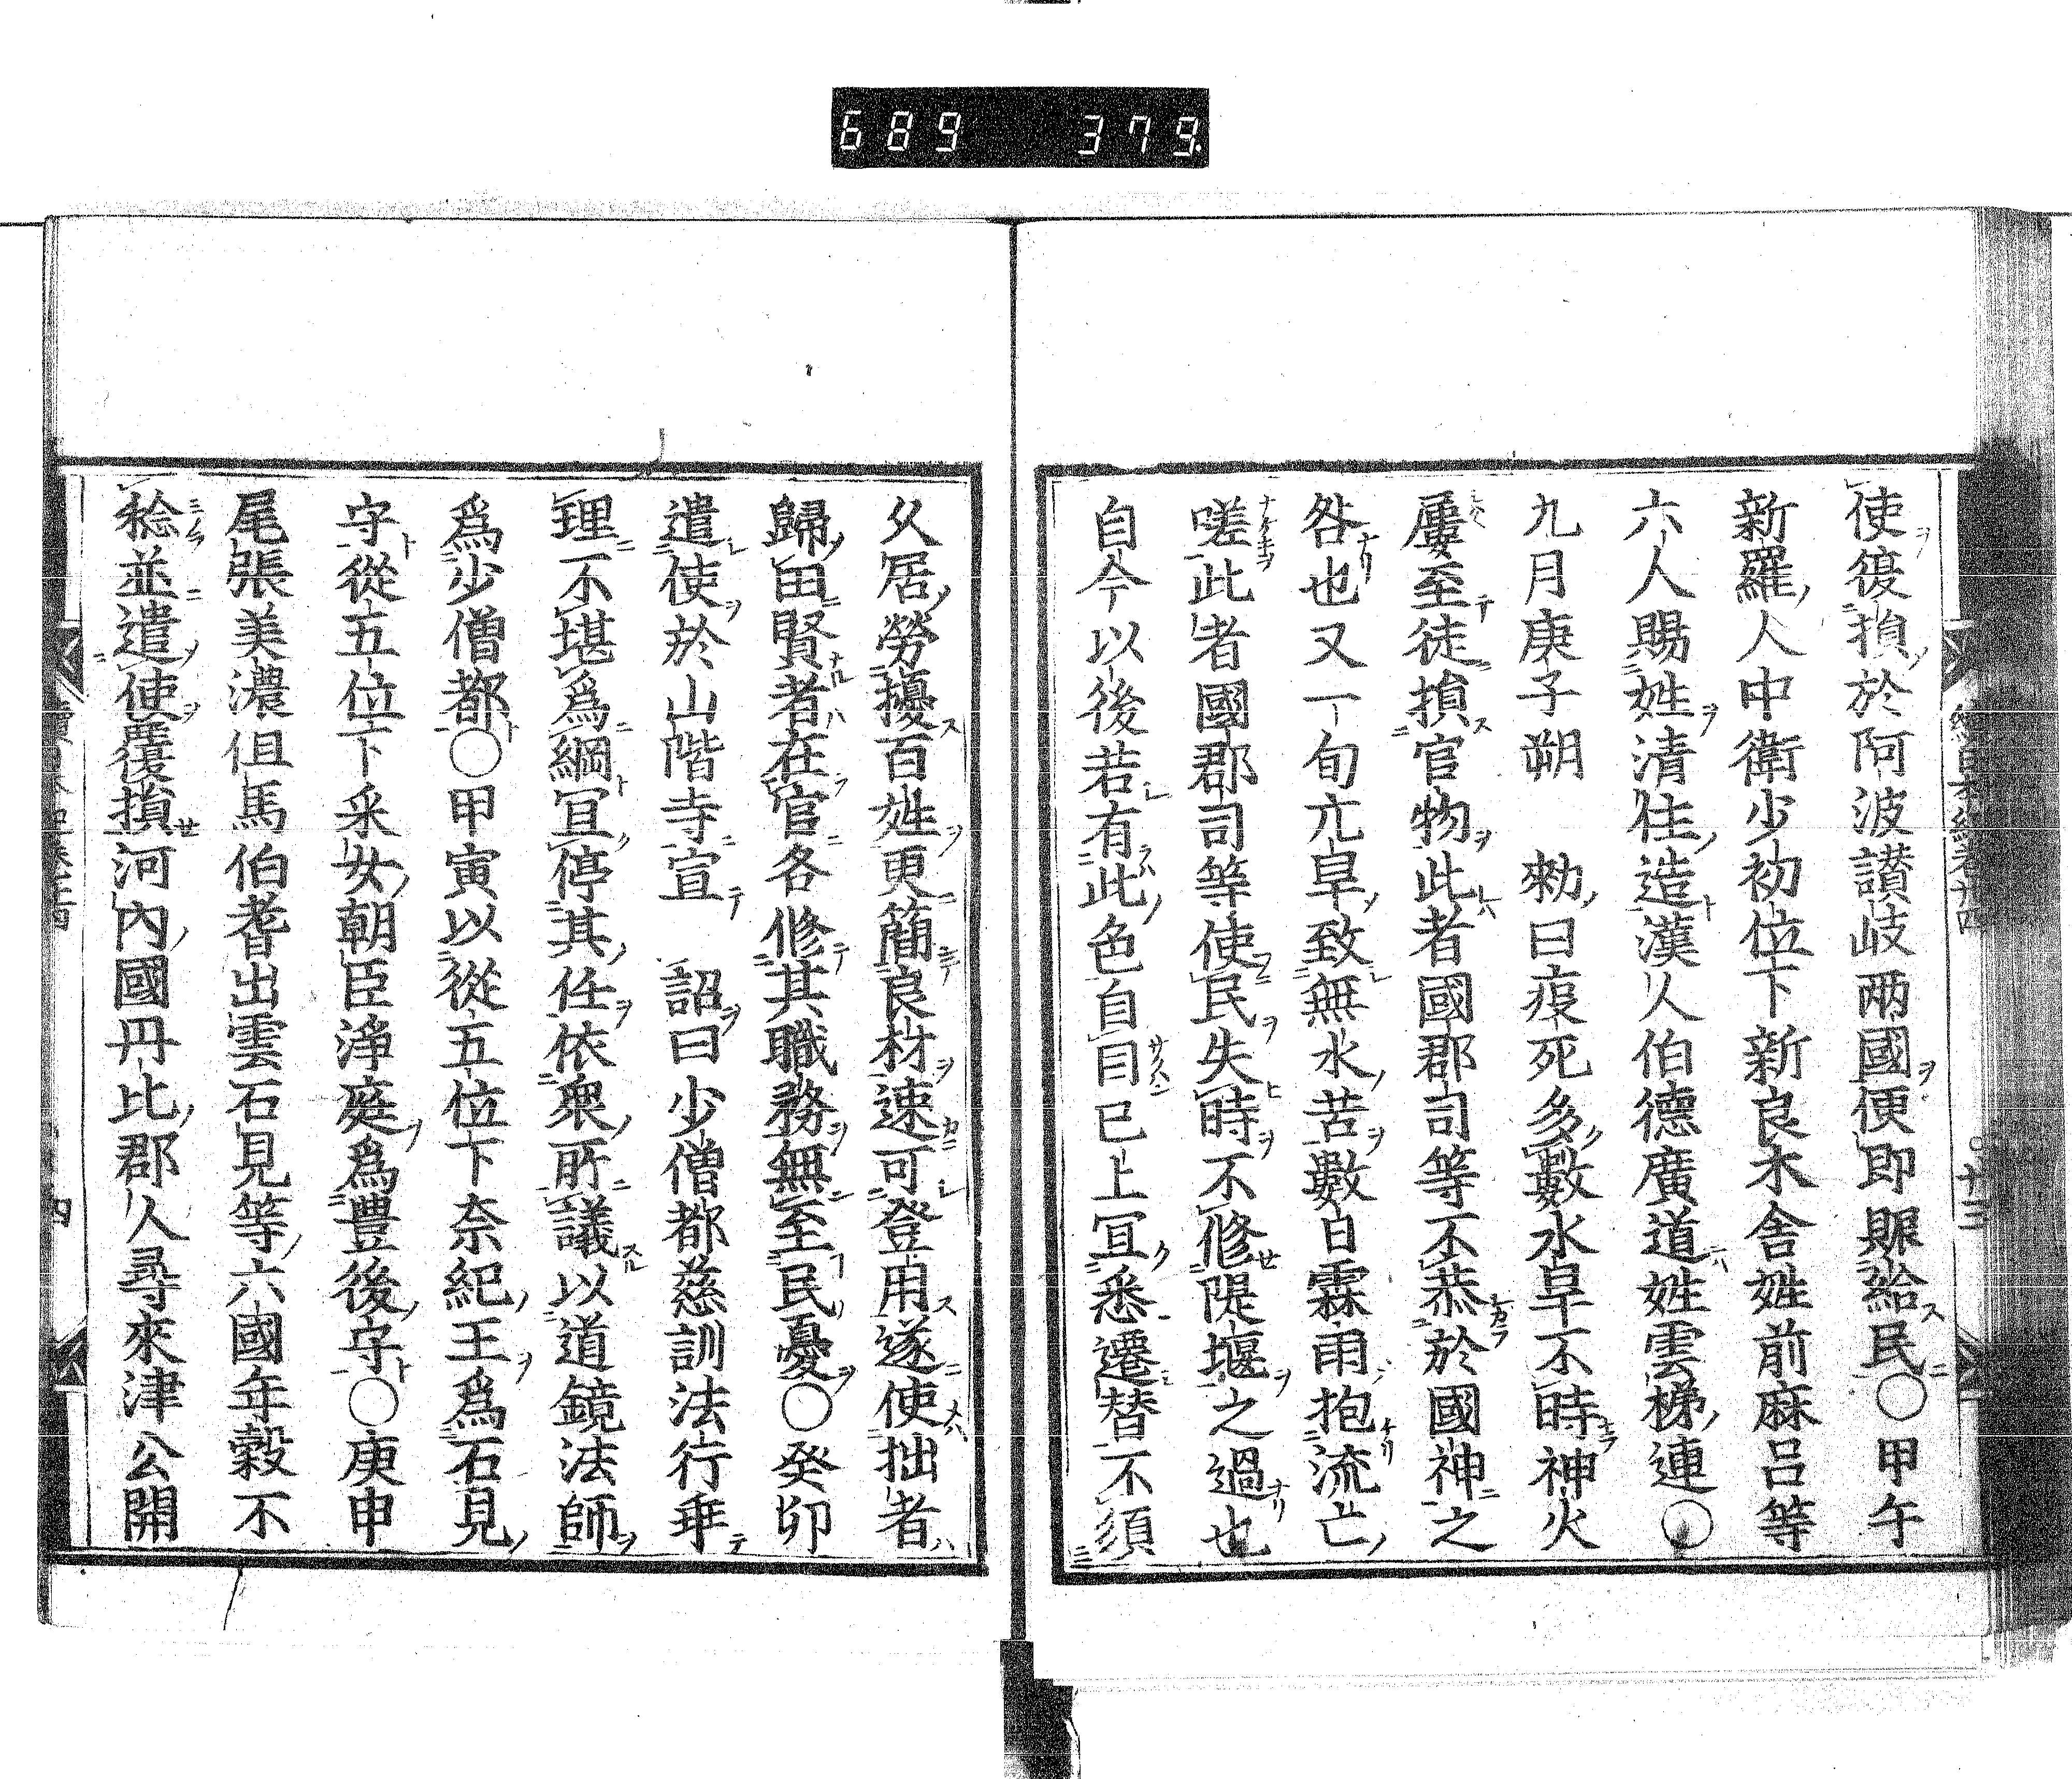 689 379.
使覆損於阿波讃岐兩國便即賑給民○甲午
新羅人中衛少初位下新良木舍姓前麻呂等
六人賜姓清住造漢人伯德廣道姓雲梯連○
九月庚子朔 勑曰疫死多數水旱不時神火
屢至徒損官物此者國郡司等不恭於國神之
咎也又一旬亢旱致無水苦數日霖雨抱流亡
嗟此者國郡司等使民失時不修隄堰之過也
自今以後若有此色自目已上冝悉遷替不須
久居勞擾百姓更簡良材速可登用遂使拙者
歸田賢者在官各修其職務無至民憂○癸卯
遣使於山階寺宣 詔曰少僧都慈訓法行乖
理不堪爲綱冝停其任依衆所議以道鏡法師
爲少僧都○甲寅以從五位下奈紀王爲石見
守從五位下采女朝臣淨庭爲豐後守○庚申
尾張美濃但馬伯耆出雲石見等六國年穀不
稔並遣使覆損河內國丹比郡人尋來津公開